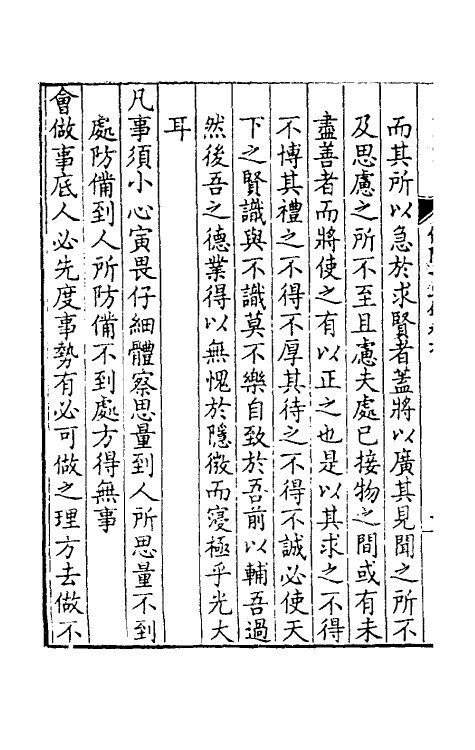 而其所以急於求賢者蓋將以廣其見聞之所不
及思慮之所不至且慮夫處已接物之間或有未
盡善者而將使之有以正之也是以其求之不得
不博其禮之不得不厚其待之不得不誠必使天
下之賢識與不識莫不樂自致於吾前以輔吾過
然後吾之德業得以無愧於隱微而寖極乎光大
耳
凡事須小心寅畏仔細體察思量到人所思量不到
處防備到人所防備不到處方得無事
會做事底人必先度事勢有必可做之理方去做不